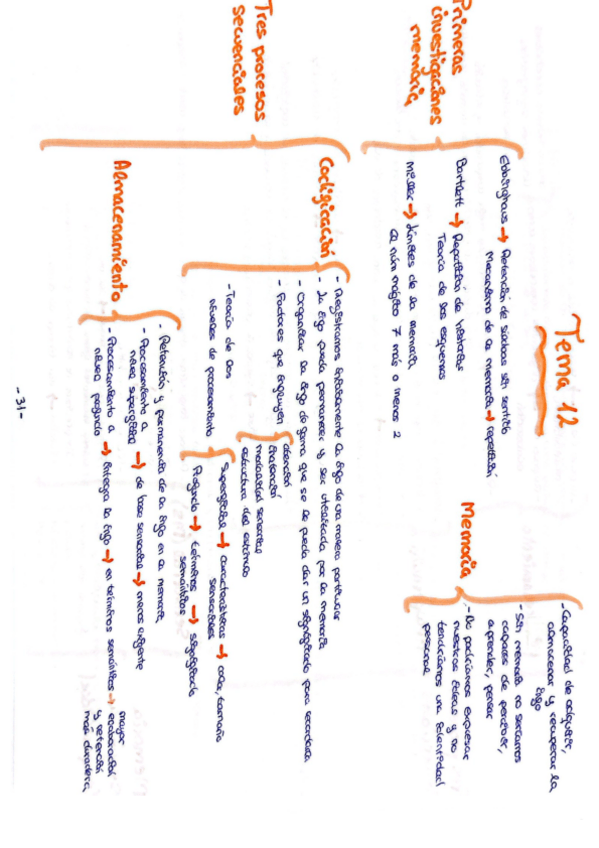 Tema 12
Memoria
- Capacidad de adquirir,
almacenar y recuperar la
info
- Sin memoria no seríamos
capaces de percibir,
aprender, pensar
- No podríamos expresar
nuestras ideas y no
tendríamos una identidad
personal
Primeras
investigaciones
memoria
Ebbinghaus → Retención de sílabas sin sentido
Mecanismo de la memoria → repetición
Bartlett → Repetición de historias
Teoría de los esquemas
Miller → Límites de la memoria
El núm mágico 7 más o menos 2
Tres procesos
secuenciales
Codificación
- Registramos inicialmente la info de una manera particular
- La info pueda permanecer y ser utilizada por la memoria
- Organizar la info de forma que se le pueda dar un significado para recordarla
- Factores que influyen
atención
motivación
modalidad sensorial
estructura del estímulo
- Teoría de los
niveles de procesamiento
Superficial → características → color, tamaño
sensoriales
Profundo → términos → significado
semánticos
Almacenamiento
- Retención y permanencia de la info en la memoria
- Procesamiento a
nivel superficial → de base sensorial → menos exigente
- Procesamiento a
nivel profundo → integra la info → en términos semánticos → elaboración
mayor
y retención
más duradera
- 31 -